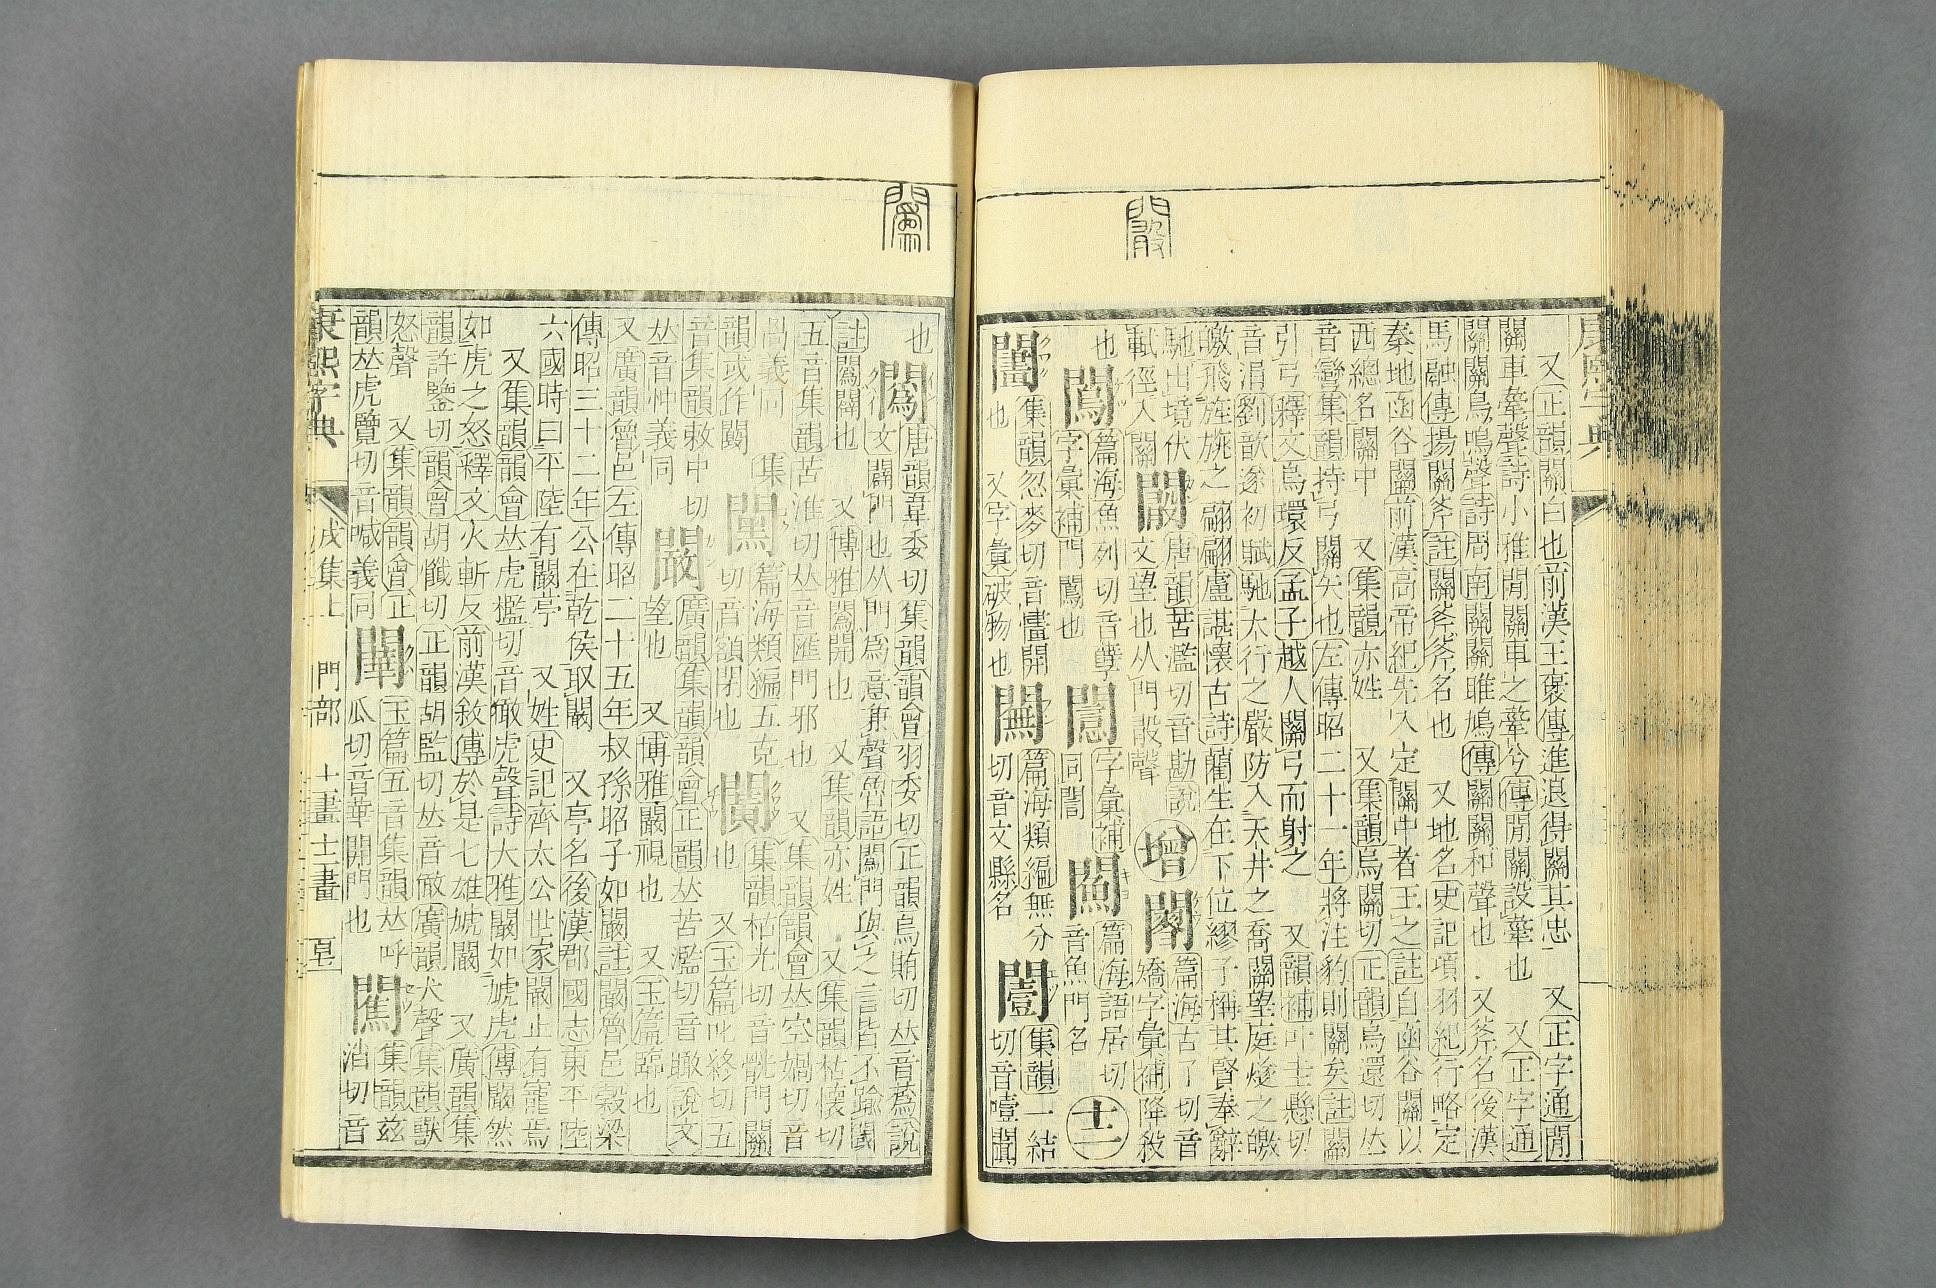 康熙字典
又正韻關白也前漢王褒傳進退得關其忠 又正字通閒
關車舝聲詩小雅閒關車之舝兮傳閒關設舝也 又正字通
關關鳥鳴聲詩周南關關雎鳩傳關關和聲也 又斧名後漢
馬融傳揚關斧註關斧斧名也 又地名史記項羽紀行略定
秦地函谷關前漢高帝紀先入定關中者王之註自函谷關以
西總名關中 又集韻亦姓 又集韻烏關切正韻烏還切𠀤
音彎集韻持弓關矢也左傳昭二十一年將注豹則關矣註關
引弓釋文烏環反孟子越人關弓而射之 又韻補叶圭懸切
音涓劉歆遂初賦馳太行之嚴防入天井之喬關望庭燧之皦
皦飛旌旐之翩翩盧諶懷古詩藺生在下位繆子稱其賢奉辭
馳出境伏 唐韻苦濫切音勘說 增 篇海古了切音
軾徑入關 闞 文望也从門敢聲 矯字彙補降殺
也 篇海魚列切音孽 字彙補 篇海語居切 十二
字彙補門闑也 同誾 音魚門名
集韻忽麥切音畫開 篇海類編無分 集韻一結
也 又字彙破物也 切音文縣名 切音噎闉
也 闠 唐韻韋委切集韻韻會羽委切正韻烏賄切𠀤音蔿說
文闢門也从門爲意兼聲魯語闈門與之言皆不踰閾
註闈闢也 又博雅闈開也 又集韻亦姓 又集韻枯懷切
五音集韻苦淮切𠀤音匯門邪也 又集韻韻會𠀤空媧切音
咼義同 集 篇海類編五克 集韻枯光切音觥門闢
韻或作闚 切音額閉也 也 又玉篇叱終切五
音集韻敕中切 闞 廣韻集韻韻會正韻𠀤苦濫切音瞰說文
𠀤音忡義同 望也 又博雅闞視也 又玉篇臨也
又廣韻魯邑左傳昭二十五年叔孫昭子如闞註闞魯邑穀梁
傳昭三十二年公在乾侯取闞 又亭名後漢郡國志東平陸
六國時曰平陸有闞亭 又姓史記齊太公世家闞止有寵焉
又集韻韻會𠀤虎檻切音㺖虎聲詩大雅闞如虓虎傳闞然
如虎之怒釋文火斬反前漢敘傳於是七雄虓闞 又廣韻集
韻許鑒切韻會胡懺切正韻胡監切𠀤音㺖廣韻犬聲集韻獸
怒聲 又集韻韻會正 玉篇五音集韻𠀤呼 集韻兹
韻𠀤虎覽切音喊義同 瓜切音華開門也 消切音
康熙字典 戌集上 門部 十一畫 十二畫